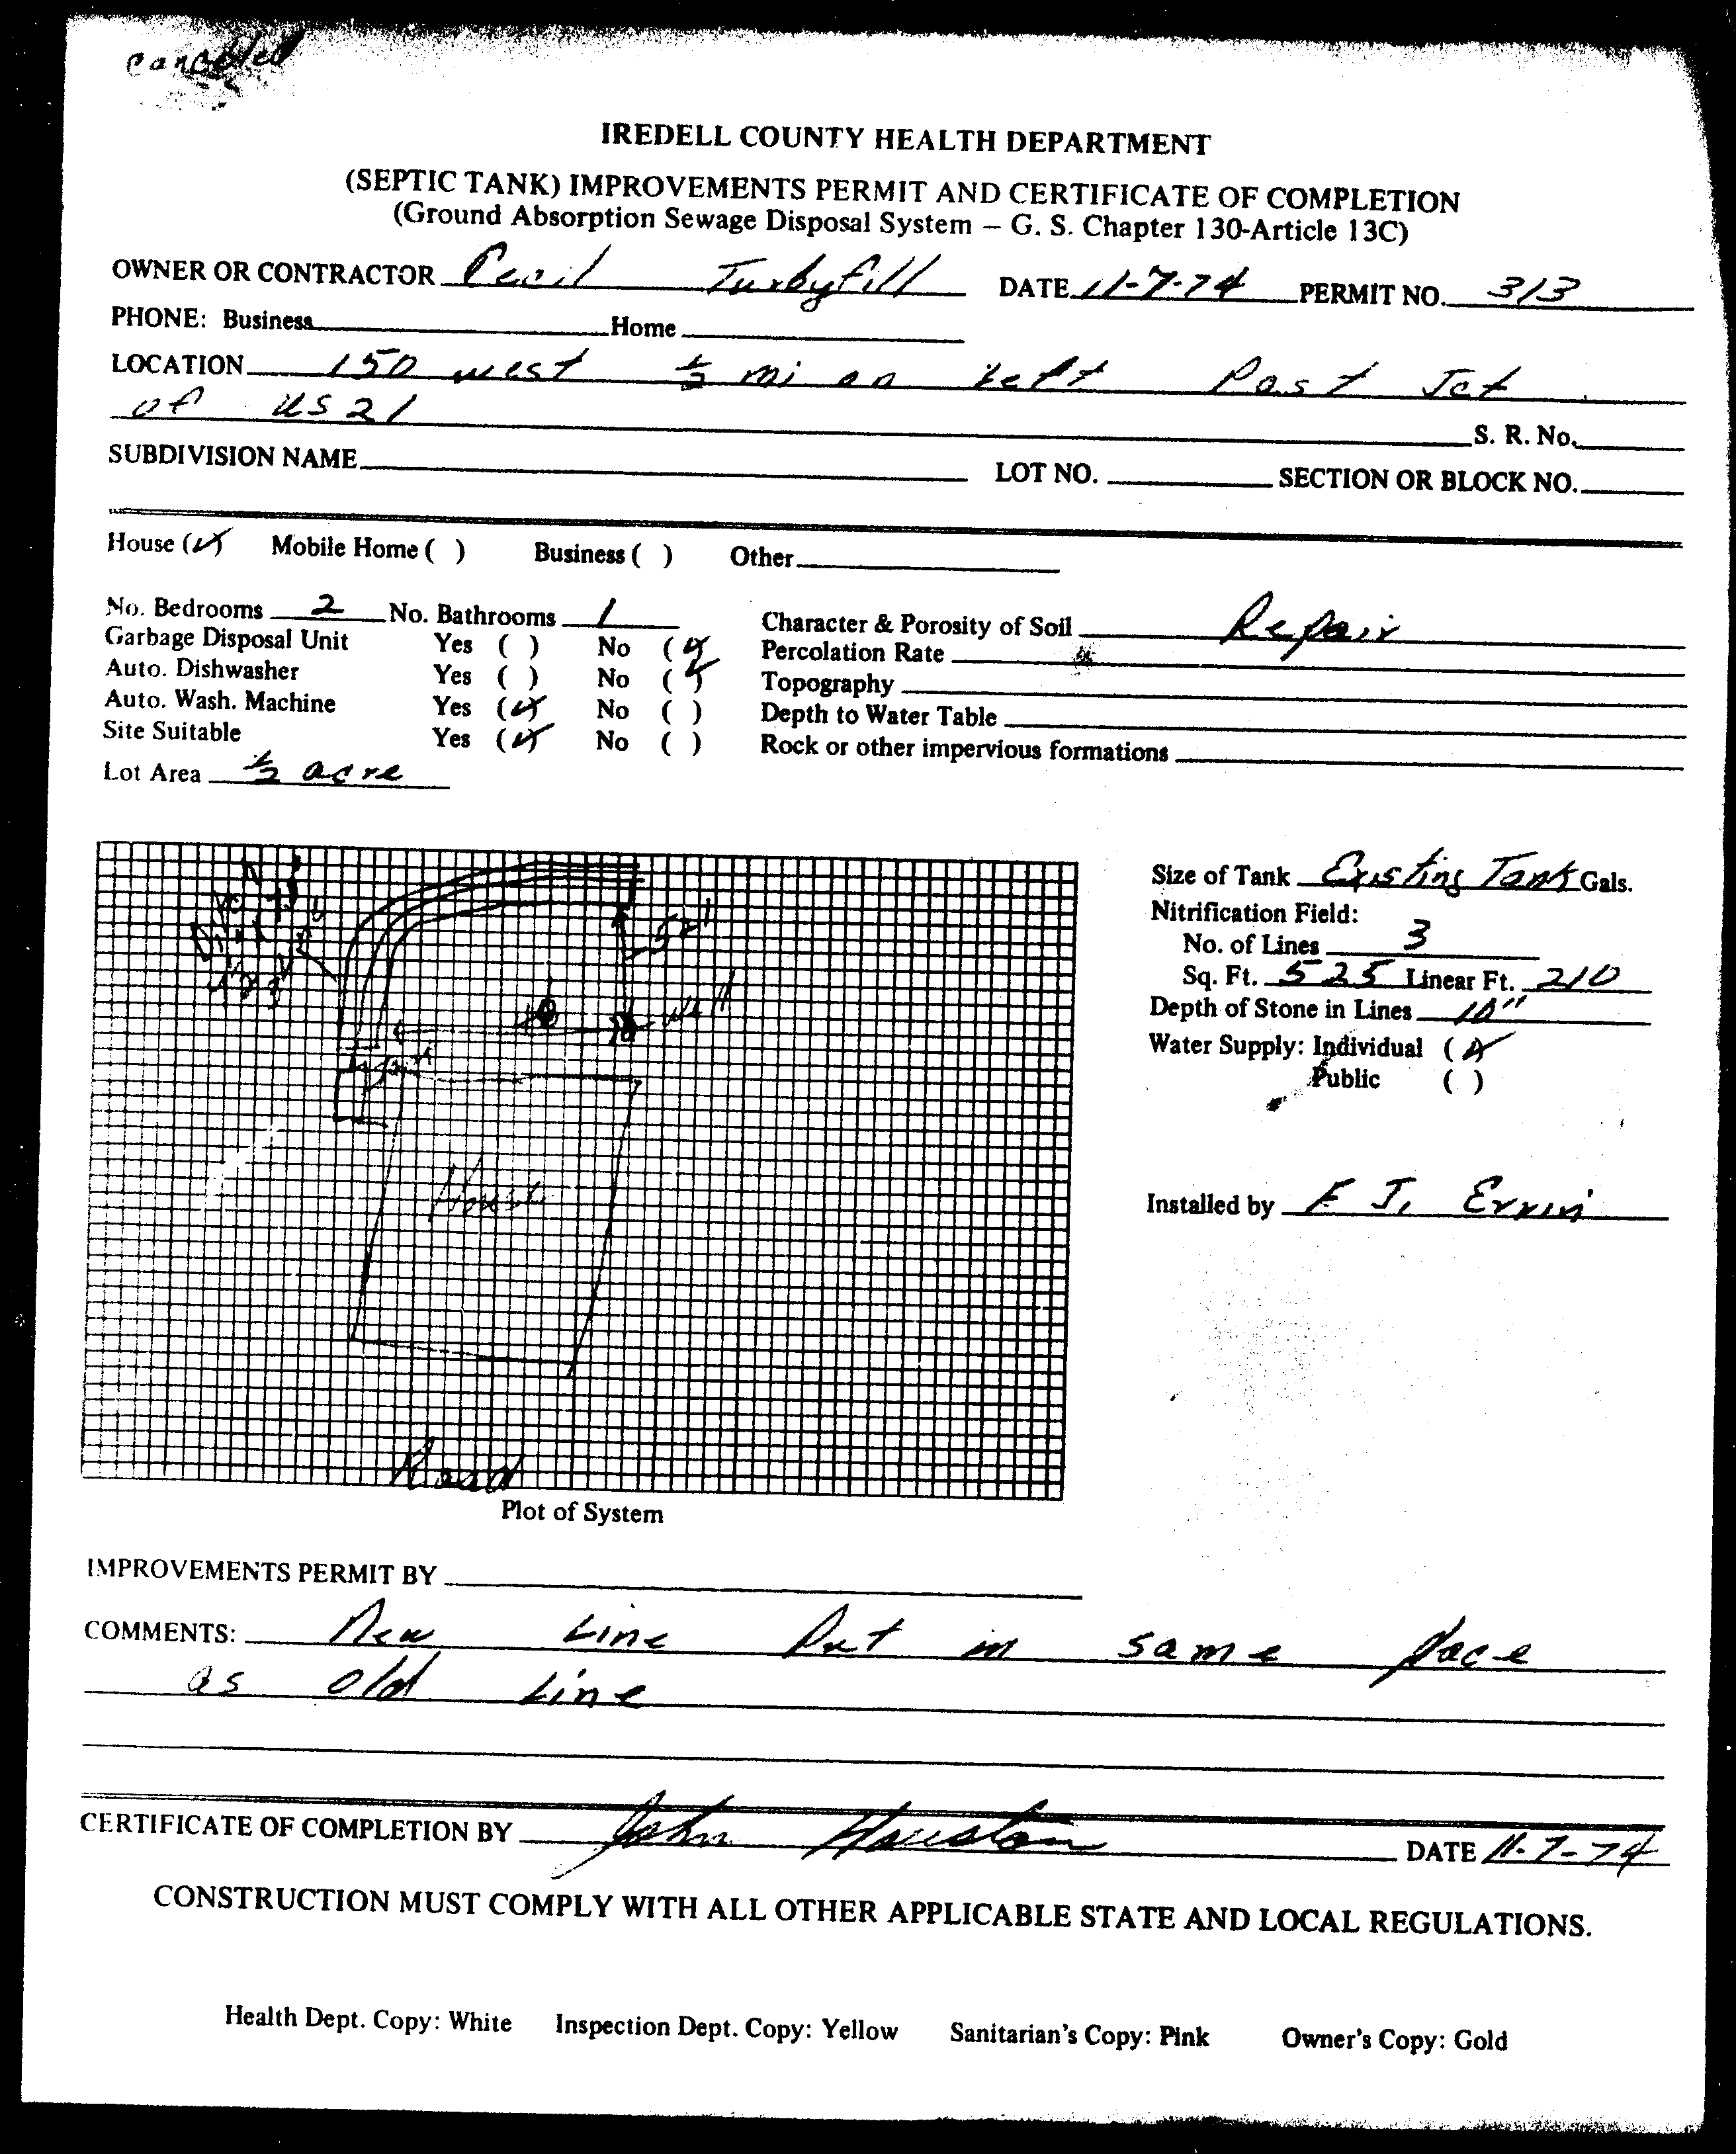 canceled
IREDELL COUNTY HEALTH DEPARTMENT
(SEPTIC TANK) IMPROVEMENTS PERMIT AND CERTIFICATE OF COMPLETION
(Ground Absorption Sewage Disposal System – G. S. Chapter 130-Article 13C)
OWNER OR CONTRACTOR Cecil Turbyfill DATE 11-7-74 PERMIT NO. 313
PHONE: Business Home
LOCATION 150 west 1/2 mi on Left Past Jct
of US 21
S. R. No.
SUBDIVISION NAME LOT NO. SECTION OR BLOCK NO.
House (✓) Mobile Home ( ) Business ( ) Other
No. Bedrooms 2 No. Bathrooms 1 Character & Porosity of Soil Repair
Garbage Disposal Unit Yes ( ) No (✓) Percolation Rate
Auto. Dishwasher Yes ( ) No (✓) Topography
Auto. Wash. Machine Yes (✓) No ( ) Depth to Water Table
Site Suitable Yes (✓) No ( ) Rock or other impervious formations
Lot Area 1/2 acre
Size of Tank Existing Tank Gals.
Nitrification Field:
No. of Lines 3
Sq. Ft. 525 Linear Ft. 210
Depth of Stone in Lines 10"
Water Supply: Individual (✓)
Public ( )
Installed by F J. Ervin
52'
Well
House
Road
Plot of System
IMPROVEMENTS PERMIT BY
COMMENTS: New Line Put in same place
as old Line
CERTIFICATE OF COMPLETION BY John Houston DATE 11-7-74
CONSTRUCTION MUST COMPLY WITH ALL OTHER APPLICABLE STATE AND LOCAL REGULATIONS.
Health Dept. Copy: White Inspection Dept. Copy: Yellow Sanitarian's Copy: Pink Owner's Copy: Gold